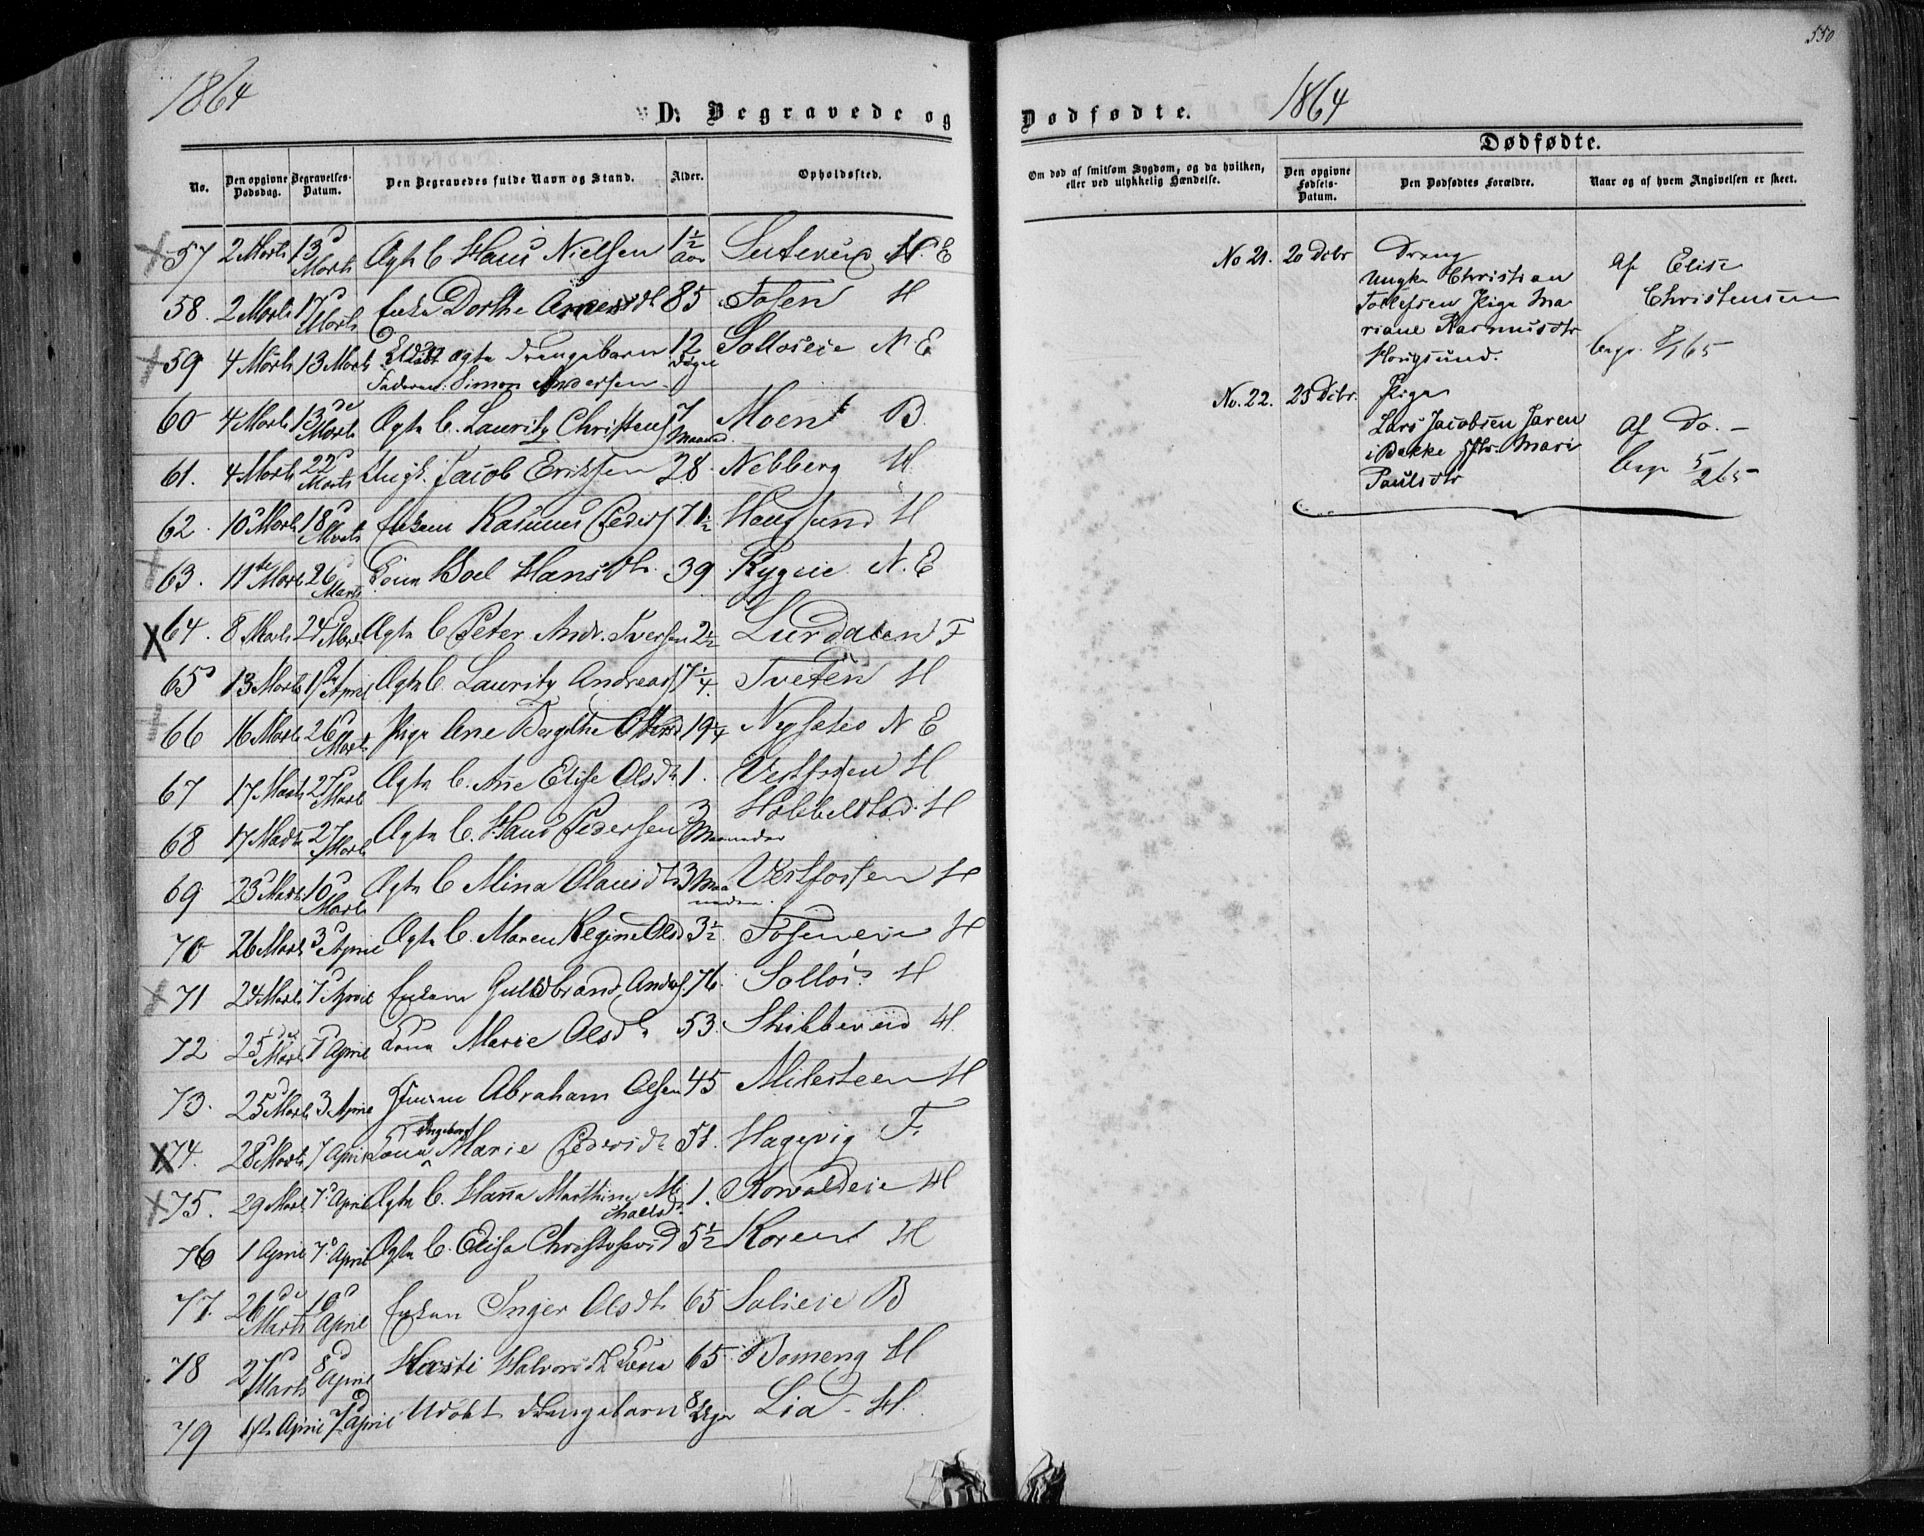 550
1864
D: Begravede og
Dødfødte.
1864
No.
Den opgivne Dødsdag.
Begravelses-Datum.
Den Begravedes fulde Navn og Stand.
Alder.
Opholdssted.
57 2 Marts 13d Marts Ægte B. Hans Nielsen 1½ aar N. E
58. 2 Marts 17d Marts Enke Dorthe 85 Fosen H
59 4 Marts 13 Marts ægte Drengebarn 12 Døgn Solloseie N E
Faderen: Simon Andersen
60 4 Marts 13de Marts Ægte B. Lauritz Christens 7 Maaned. Moen B.
61. 4 Marts 22d Marts Ungk. Jacob Eriksen 28 Nebberg H.
62. 10 Marts 18d Marts Enkem Rasmus Peders 71½ Hougsund H
63. 11te Marts 26 Marts Kona Boel Hansdtr. 39 Rygeie N. E
64. 8 Marts 24d Marts Ægte B Peter Andr. Iversen 2½ Lurdalen F
65 13 Marts April Ægte B. Lauritz Andreas Tveten H
66 16 Marts 26d Marts Pige Ane 19¼ N E
67 17 Marts 27d Marts Ægte B. Ane Elise Olsdtr 1. Vestfossen H
68 17 Marts 27 Marts Ægte B. Hans Pedersen 3 Maaneder Hobbelstad H
69 23 Marts 10d Marts Ægte B Mina Olausdtr 3 Maaneder. Vestfossen H
70 26 Marts 3d April Ægte B. Maren Regine Olsd 3½ Foseneie H
71 24 Marts 7d April Enkem Guldbrand Anders. 76. Sollos H
72 25de Marts 7d April Kona Marie Olsdtr 53. Skibbereid H.
73. 25d Marts 3 April Abraham Olsen 45 Milesteen H
74. 28d Marts 7 April Kona Ingeborg Marie Pedersdtr 51. Hagevig F.
75. 29 Marts 7d April Ægte B. Hanna Marthine Michaelsdtr. 1. Korvaldeie H
76 1 April 7d April Ægte B. Elise Christophersd 5½ Koren H
77. 26de Marts 10d April Enken Inger Olsdtr 65 Solieie B
78 27d Marts 8d April Halvorsdtr Kona 65 Bomeng H
79 1ste April 7d April Udøbt Drengebarn 8 Uger Lia H.
Om død af smitsom Sygdom, og da hvilken, eller ved ulykkelig Hændelse.
Dødfødte.
Den opgivne Fødsels-Datum.
Den Dødfødtes Forældre.
Naar og af hvem Angivelsen er skeet.
No 21. 20 Dcbr Dreng
Ungk. Christian
Tollefsen Pige Ma
riane Rasmusdtr
Hougsund.
af Elise
Christensen
begr. 8/1 65
No. 22. 25 Dcbr. Pige
Lars Jacobsen Jaren
i Bakke Hstr. Mari
Paulsdtr
af Do. -
begr 5/2 65